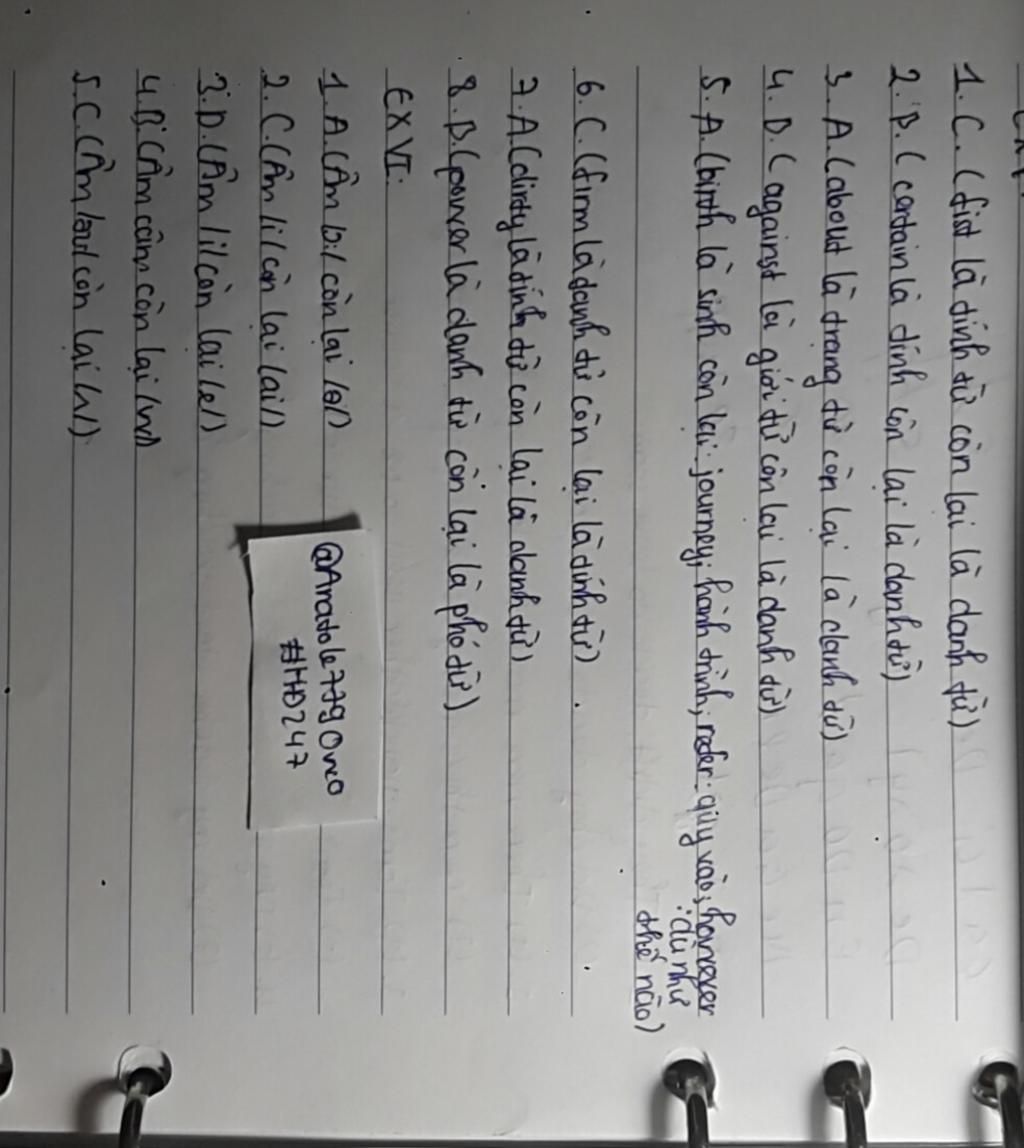 1. C. (fist là tính từ còn lại là danh từ)
2. B. (certain là tính còn lại là danh từ)
3. A. (about là trạng từ còn lại là danh từ)
4. D. (against là giới từ còn lại là danh từ)
5. A. (birth là sinh còn lại: journey; hành trình; refer: quy vào; however
: dù như
thế nào)
6. C. (firm là danh từ còn lại là tính từ)
7. A (dirty là tính từ còn lại là danh từ)
8. B. (power là danh từ còn lại là phó từ)
EX VI:
1. A. (Âm /ɔi/ còn lại /ə/)
2. C. (Âm /i/ còn lại /ai/)
3. D. (Âm /i/ còn lại /e/)
4. B. (Âm câm còn lại /w/)
5. C. (Âm /əu/ còn lại /ʌ/)
@Aratole779Oneo
#HĐ247